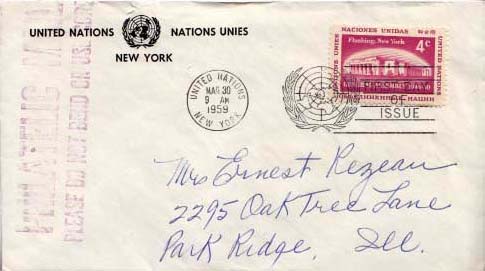 UNITED NATIONS NATIONS UNIES
NEW YORK
NACIONES UNIDAS
Flushing, New York
4c
NATIONS UNIES
UNITED NATIONS
UNITED NATIONS
MAR 30
9 AM
1959
NEW YORK
OF
ISSUE
PHILATELIC MAIL
PLEASE DO NOT BEND OR USE
Mrs Ernest Rezeau
2295 Oak Tree Lane
Park Ridge, Ill.